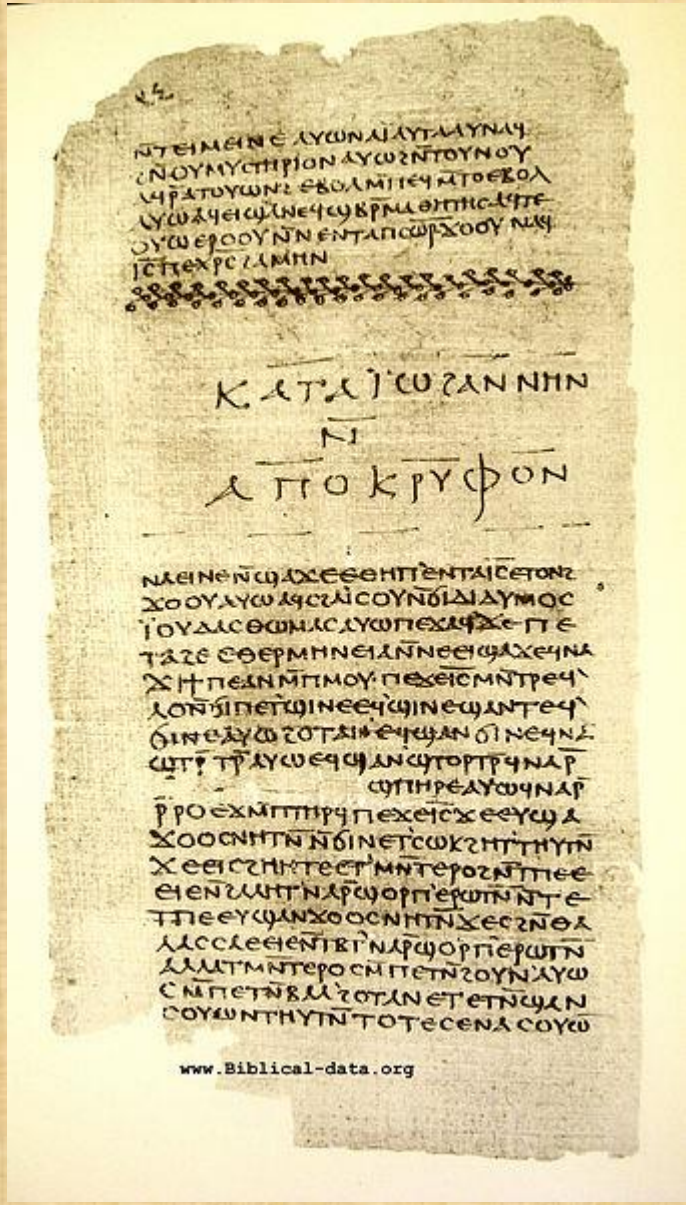 ⲗ̅ⲃ̅
ⲛ̅ⲧⲉⲓⲙⲉⲓⲛⲉ ⲁⲩⲱ ⲛⲁⲓ ⲁⲩⲧⲁⲁⲩ ⲛⲁϥ
ϩⲛ̅ⲟⲩⲙⲩⲥⲧⲏⲣⲓⲟⲛ ⲁⲩⲱ ϩⲛ̅ⲧⲟⲩⲛⲟⲩ
ⲁϥⲣ̅ⲁⲧⲟⲩⲱⲛϩ ⲉⲃⲟⲗ ⲙ̅ⲡⲉϥⲙ̅ⲧⲟ ⲉⲃⲟⲗ
ⲁⲩⲱ ⲁϥⲉⲓ ϣⲁⲛⲉϥϣⲃⲣ̅ⲙⲁⲑⲏⲧⲏⲥ ⲁϥⲧⲉ
ⲟⲩⲱ ⲉⲣⲟⲟⲩ ⲛ̅ⲛⲉⲛⲧⲁⲡⲥⲱⲣ̅ ϫⲟⲟⲩ ⲛⲁϥ
ⲓ̅ⲥ̅ ⲡⲉⲭ̅ⲣ̅ⲥ̅ ϩⲁⲙⲏⲛ
ⲕⲁⲧⲁ ⲓ̈ⲱϩⲁⲛⲛⲏⲛ
ⲛ̅ⲓ
ⲁⲡⲟⲕⲣⲩⲫⲟⲛ
ⲛⲁⲉⲓ ⲛⲉ ⲛ̅ϣⲁϫⲉ ⲉⲑⲏⲡ ⲉⲛⲧⲁⲓ̅ⲥ̅ ⲉⲧⲟⲛϩ
ϫⲟⲟⲩ ⲁⲩⲱ ⲁϥⲥϩⲁⲓ̈ⲥⲟⲩ ⲛ̅ϭⲓ ⲇⲓⲇⲩⲙⲟⲥ
ⲓ̈ⲟⲩⲇⲁⲥ ⲑⲱⲙⲁⲥ ⲁⲩⲱ ⲡⲉϫⲁϥ ϫⲉ ⲡⲉ
ⲧⲁϩⲉ ⲉⲑⲉⲣⲙⲏⲛⲉⲓⲁ ⲛ̅ⲛⲉⲉⲓϣⲁϫⲉ ϥⲛⲁ
ϫⲓ ϯⲡⲉ ⲁⲛ ⲙ̅ⲡⲙⲟⲩ ⲡⲉϫⲉ ⲓ̅ⲥ̅ ⲙⲛ̅ⲧⲣⲉϥ
ⲗⲟ ⲛ̅ϭⲓ ⲡⲉⲧϣⲓⲛⲉ ⲉϥϣⲓⲛⲉ ϣⲁⲛⲧⲉϥ
ϭⲓⲛⲉ ⲁⲩⲱ ϩⲟⲧⲁⲛ ⲉϥϣⲁⲛϭⲓⲛⲉ ϥⲛⲁ
ϣⲧⲣ̅ⲧⲣ̅ ⲁⲩⲱ ⲉϥϣⲁⲛϣⲧⲟⲣⲧⲣ̅ ϥⲛⲁⲣ̅
ϣⲡⲏⲣⲉ ⲁⲩⲱ ϥⲛⲁⲣ̅
ⲣ̅ⲣⲟ ⲉϫⲙ̅ⲡⲧⲏⲣϥ ⲡⲉϫⲉ ⲓ̅ⲥ̅ ϫⲉ ⲉⲩϣⲁ
ϫⲟⲟⲥ ⲛⲏⲧⲛ̅ ⲛ̅ϭⲓ ⲛⲉⲧⲥⲱⲕ ϩⲏⲧⲧⲏⲩⲧⲛ̅
ϫⲉ ⲉⲓⲥϩⲏⲏⲧⲉ ⲉⲧⲙⲛ̅ⲧⲉⲣⲟ ϩⲛ̅ⲧⲡⲉ ⲉ
ⲉⲓⲉ ⲛ̅ϩⲁⲗⲏⲧ ⲛⲁⲣ̅ϣⲟⲣⲡ ⲉⲣⲱⲧⲛ̅ ⲛ̅ⲧⲉ
ⲧⲡⲉ ⲉⲩϣⲁⲛϫⲟⲟⲥ ⲛⲏⲧⲛ̅ ϫⲉ ⲥϩⲛ̅ⲑⲁ
ⲗⲁⲥⲥⲁ ⲉⲉⲓⲉ ⲛ̅ⲧⲃⲧ ⲛⲁⲣ̅ϣⲟⲣⲡ ⲉⲣⲱⲧⲛ̅
ⲁⲗⲗⲁ ⲧⲙⲛ̅ⲧⲉⲣⲟ ⲥⲙ̅ⲡⲉⲧⲛ̅ϩⲟⲩⲛ ⲁⲩⲱ
ⲥⲙ̅ⲡⲉⲧⲛ̅ⲃⲁⲗ ϩⲟⲧⲁⲛ ⲉⲧⲉⲧⲛ̅ϣⲁⲛ
ⲥⲟⲩⲱⲛ ⲧⲏⲩⲧⲛ̅ ⲧⲟⲧⲉ ⲥⲉⲛⲁⲥⲟⲩⲱ
www.Biblical-data.org